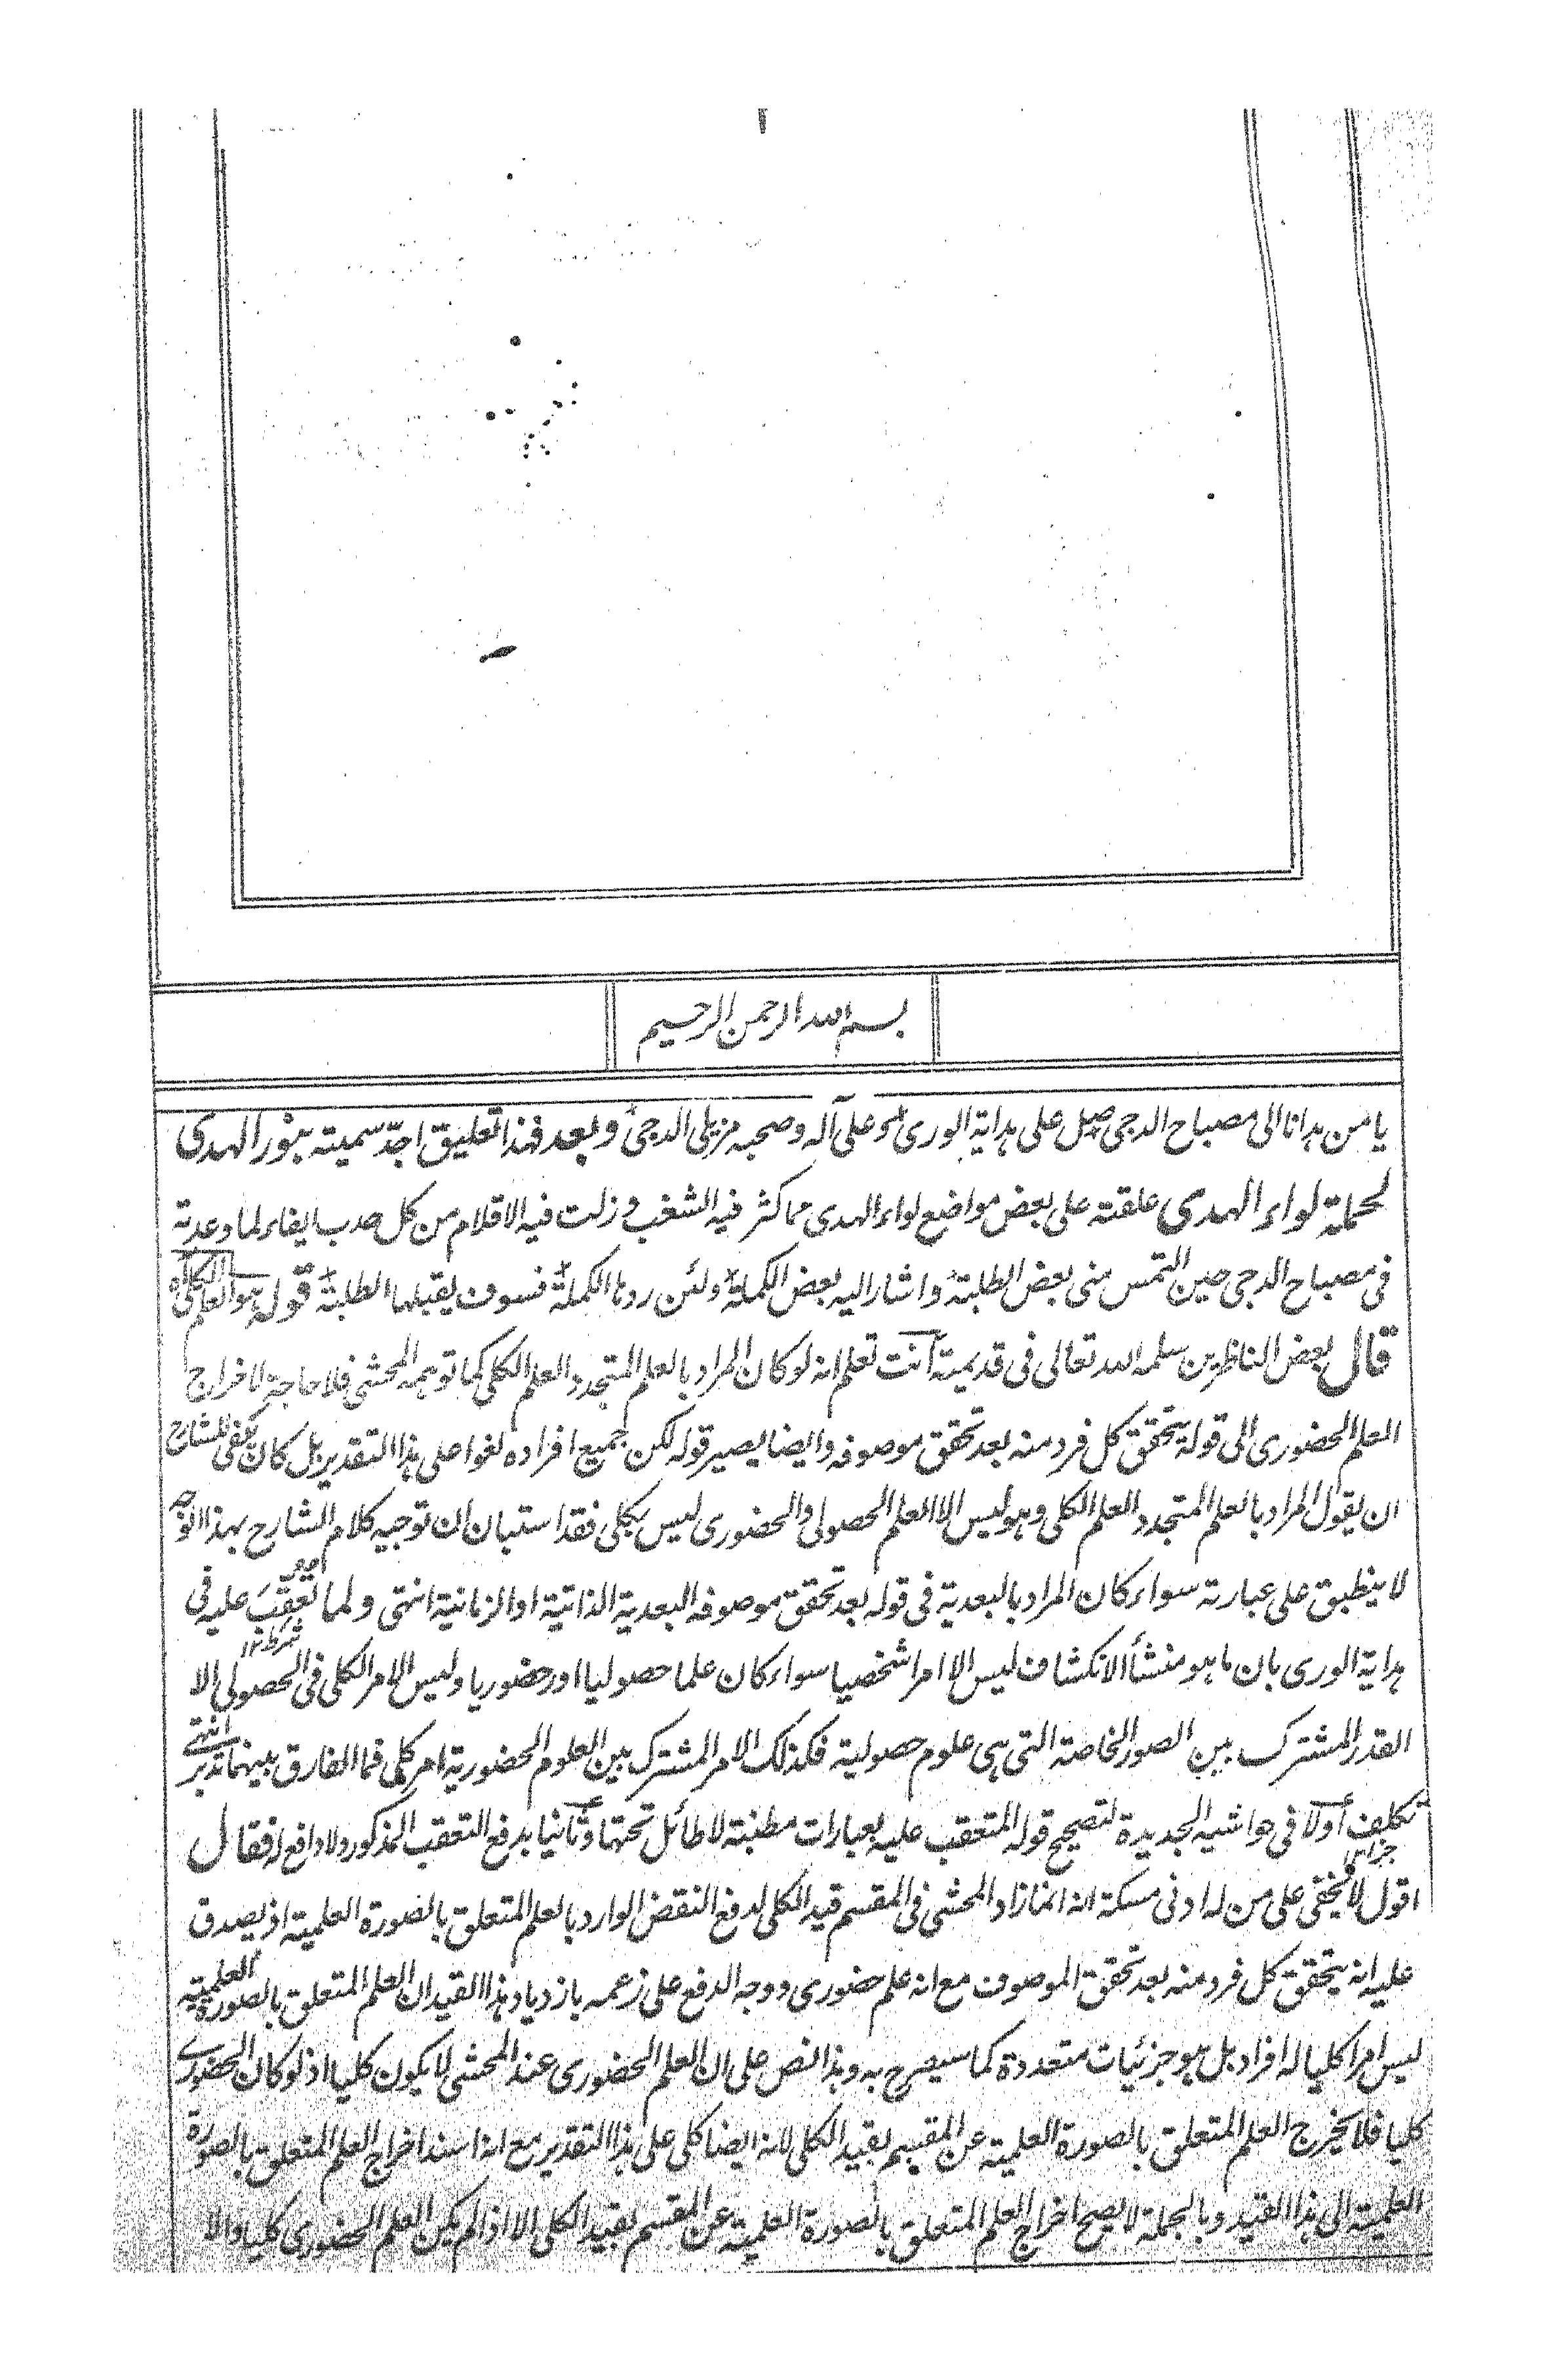 بسم الله الرحمن الرحيم
يا من هدانا الى مصباح الدجى صل على هداية الورى وعلى آله وصحبه مزيلى الدجى وبعد فهذا تعليق اجد سميته بنور الهدى
لحملة لواء الهدى علقته على بعض مواضع لواء الهدى مما كثر فيه الشغب وزلت فيه الاقلام من كل صدب ايفاء لما وعدته
فى مصباح الدجى حين التمس منى بعض الطلبة واشار اليه بعض الكملة ولئن ردها الكملة فسوف يقبلها الطلبة قوله هو العلم الكلى اه
قال بعض الناظرين سلمه الله تعالى فى قديميته انت تعلم انه لو كان المراد بالعلم المتجدد العلم الكلى كما توهمه المحشى فلا حاجة لاخراج
العلم الحضورى الى قوله يتحقق كل فرد منه بعد تحقق موصوفه وايضا يصير قوله لكن جميع افراده لغوا على هذا التقدير بل كان يكفى للشارح
ان يقول المراد بالعلم المتجدد العلم الكلى وهو ليس الا العلم الحصولى والحضورى ليس بكلى فقد استبان ان توجيه كلام الشارح بهذا التوجيه
لا ينطبق على عبارته سواء كان المراد بالبعدية فى قوله بعد تحقق موصوفه البعدية الذاتية او الزمانية انتهى ولما تعقب عليه فى
شرط ١٢
هداية الورى بان ما هو منشأ الانكشاف ليس الا امرا شخصيا سواء كان علما حصوليا او حضوريا وليس الامر الكلى فى الحصولى الا
القدر المشترك بين الصور الخاصة التى هى علوم حصولية فكذلك الامر المشترك بين العلوم الحضورية امر كلى فما الفارق بينهما تدبر انتهى
تكلف اولا فى حواشيه الجديدة لتصحيح قوله المتعقب عليه بعبارات مطنبة لا طائل تحتها وثانيا بدفع التعقب المذكور ولا دافع له فقال
جزا ١٢
اقول لا يخفى على من له ادنى مسكة انه انما زاد المحشى فى المقسم قيد الكلى لدفع النقض الوارد بالعلم المتعلق بالصورة العلمية اذ يصدق
عليه انه يتحقق كل فرد منه بعد تحقق الموصوف مع انه علم حضورى ووجه الدفع على زعمه بازدياد هذا القيد ان العلم المتعلق بالصورة العلمية
ليس امرا كليا له افراد بل هو جزئيات متعددة كما سيصرح به وهذا نص على ان العلم الحضورى عند المحشى لا يكون كليا اذ لو كان الحضورى
كليا فلا يخرج العلم المتعلق بالصورة العلمية عن المقسم بقيد الكلى لانه ايضا كلى على هذا التقدير مع انه اسند اخراج العلم المتعلق بالصورة
العلمية الى هذا القيد وبالجملة لا يصح اخراج العلم المتعلق بالصورة العلمية عن المقسم بقيد الكلى الا اذا لم يكن العلم الحضورى كليا والا